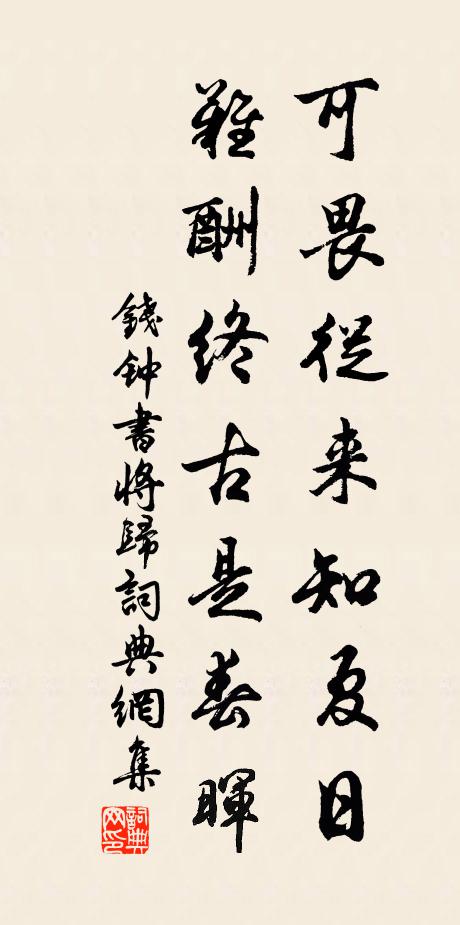 可畏從来知夏日
難酬終古是春暉
錢钟書将歸詞典網集
詞典网印